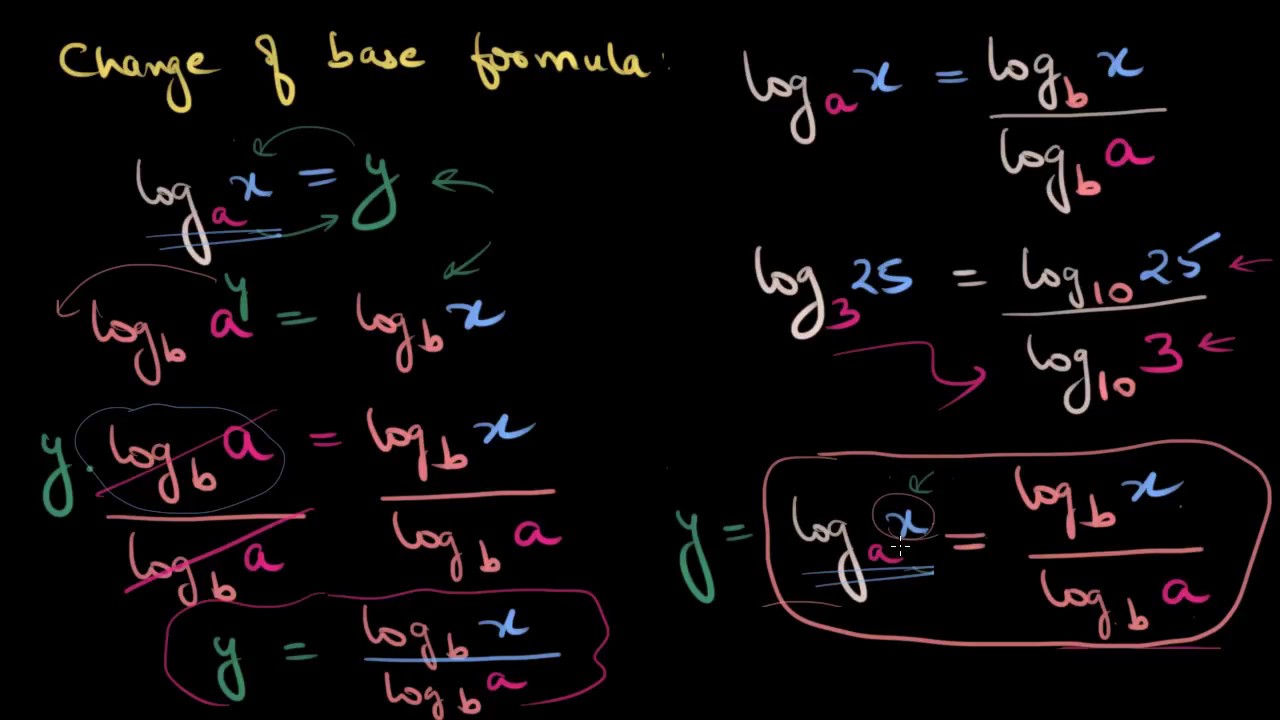 Change of base formula:
log_a x = y
log_b a^y = log_b x
y · log_b a / log_b a = log_b x / log_b a
y = log_b x / log_b a
log_a x = log_b x / log_b a
log_3 25 = log_10 25 / log_10 3
y = log_a x = log_b x / log_b a